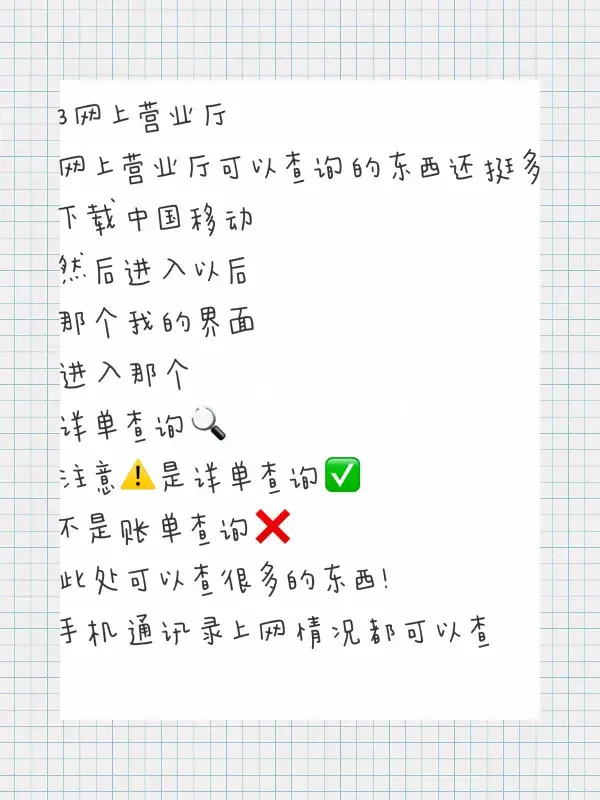 3网上营业厅
网上营业厅可以查询的东西还挺多
下载中国移动
然后进入以后
那个我的界面
进入那个
详单查询🔍
注意⚠️是详单查询✅
不是账单查询❌
此处可以查很多的东西!
手机通讯录上网情况都可以查